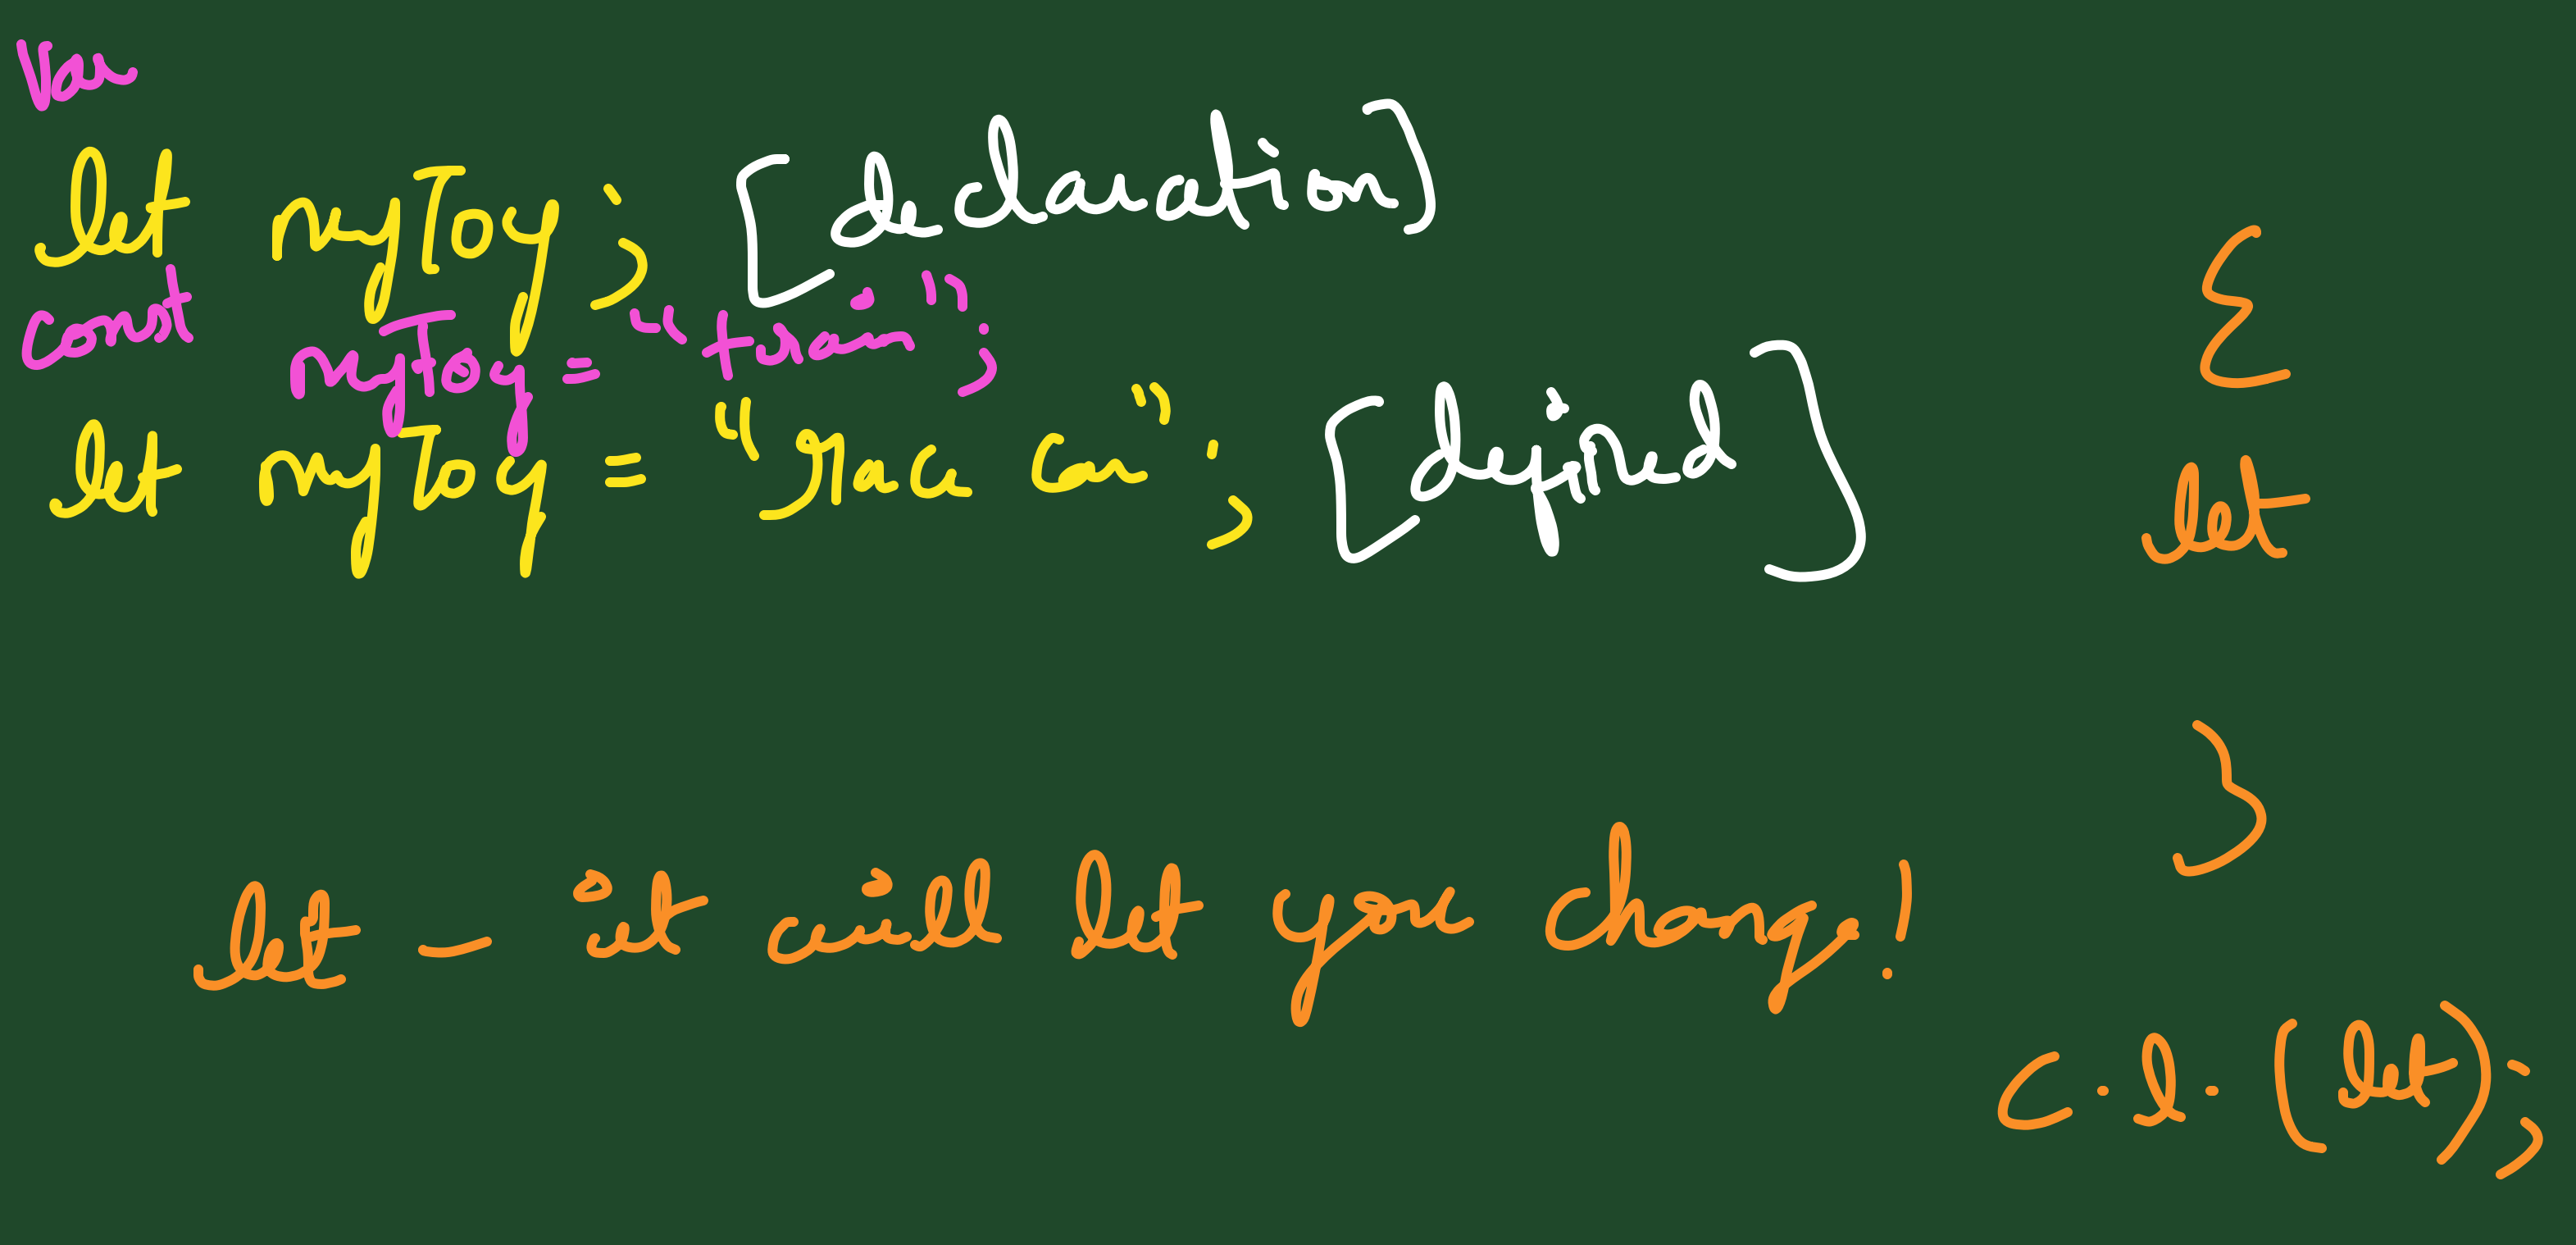 Var
let myToy; [declaration]
const myToy = "train";
let myToy = "race car"; [defined]
{
let
}
let - it will let you change!
c.l.(let);